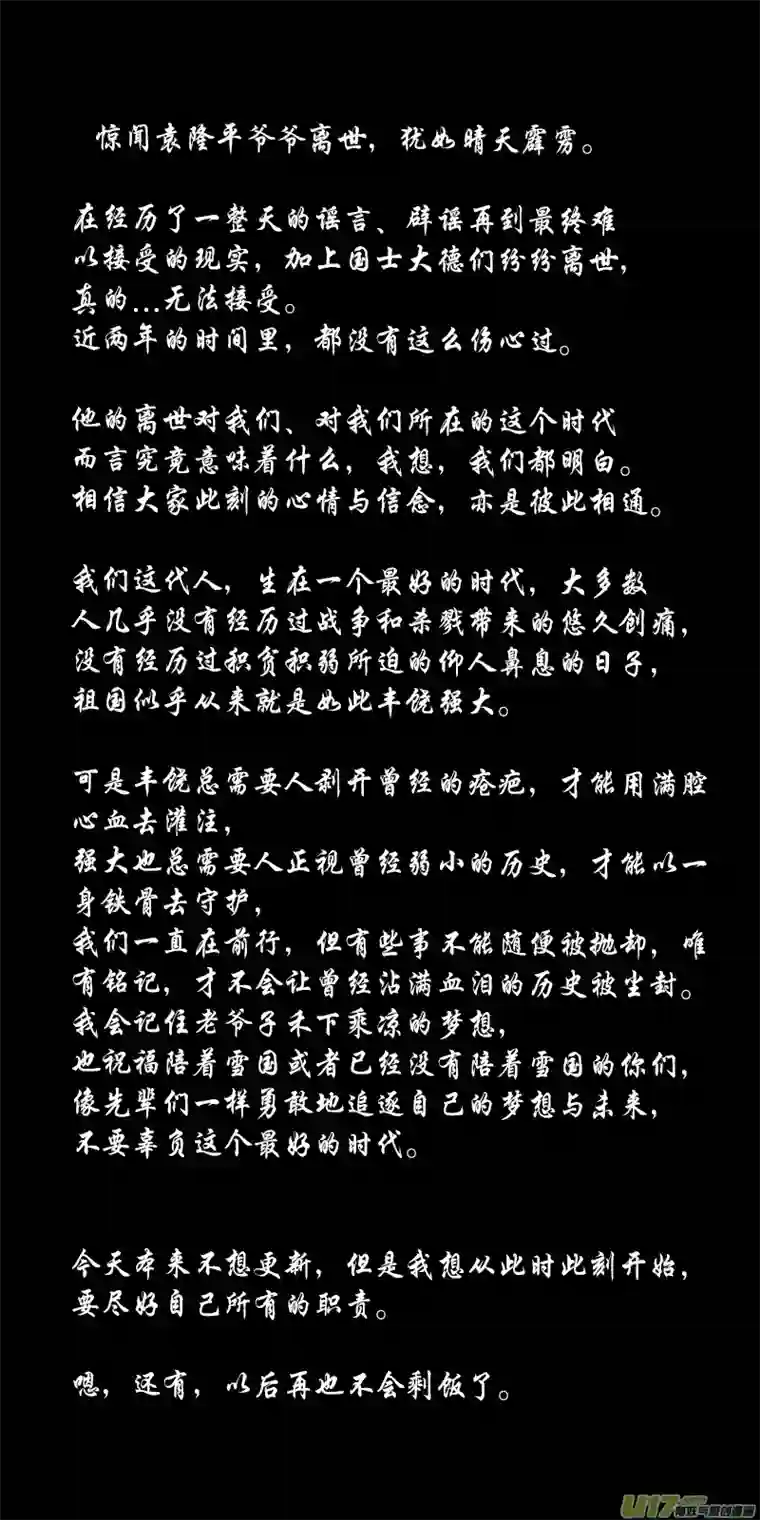 惊闻袁隆平爷爷离世，犹如晴天霹雳。
在经历了一整天的谣言、辟谣再到最终难
以接受的现实，加上国士大德们纷纷离世，
真的...无法接受。
近两年的时间里，都没有这么伤心过。
他的离世对我们、对我们所在的这个时代
而言究竟意味着什么，我想，我们都明白。
相信大家此刻的心情与信念，亦是彼此相通。
我们这代人，生在一个最好的时代，大多数
人几乎没有经历过战争和杀戮带来的悠久创痛，
没有经历过积贫积弱所迫的仰人鼻息的日子，
祖国似乎从来就是如此丰饶强大。
可是丰饶总需要人剥开曾经的疮疤，才能用满腔
心血去灌注，
强大也总需要人正视曾经弱小的历史，才能以一
身铁骨去守护，
我们一直在前行，但有些事不能随便被抛却，唯
有铭记，才不会让曾经沾满血泪的历史被尘封。
我会记住老爷子禾下乘凉的梦想，
也祝福陪着雪国或者已经没有陪着雪国的你们，
像先辈们一样勇敢地追逐自己的梦想与未来，
不要辜负这个最好的时代。
今天本来不想更新，但是我想从此时此刻开始，
要尽好自己所有的职责。
嗯，还有，以后再也不会剩饭了。